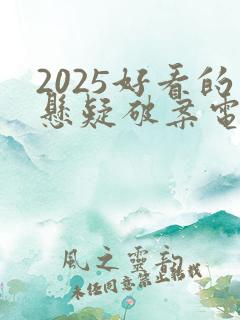 2025好看的
懸疑破案電
風之靈韵
未经同意禁止转载